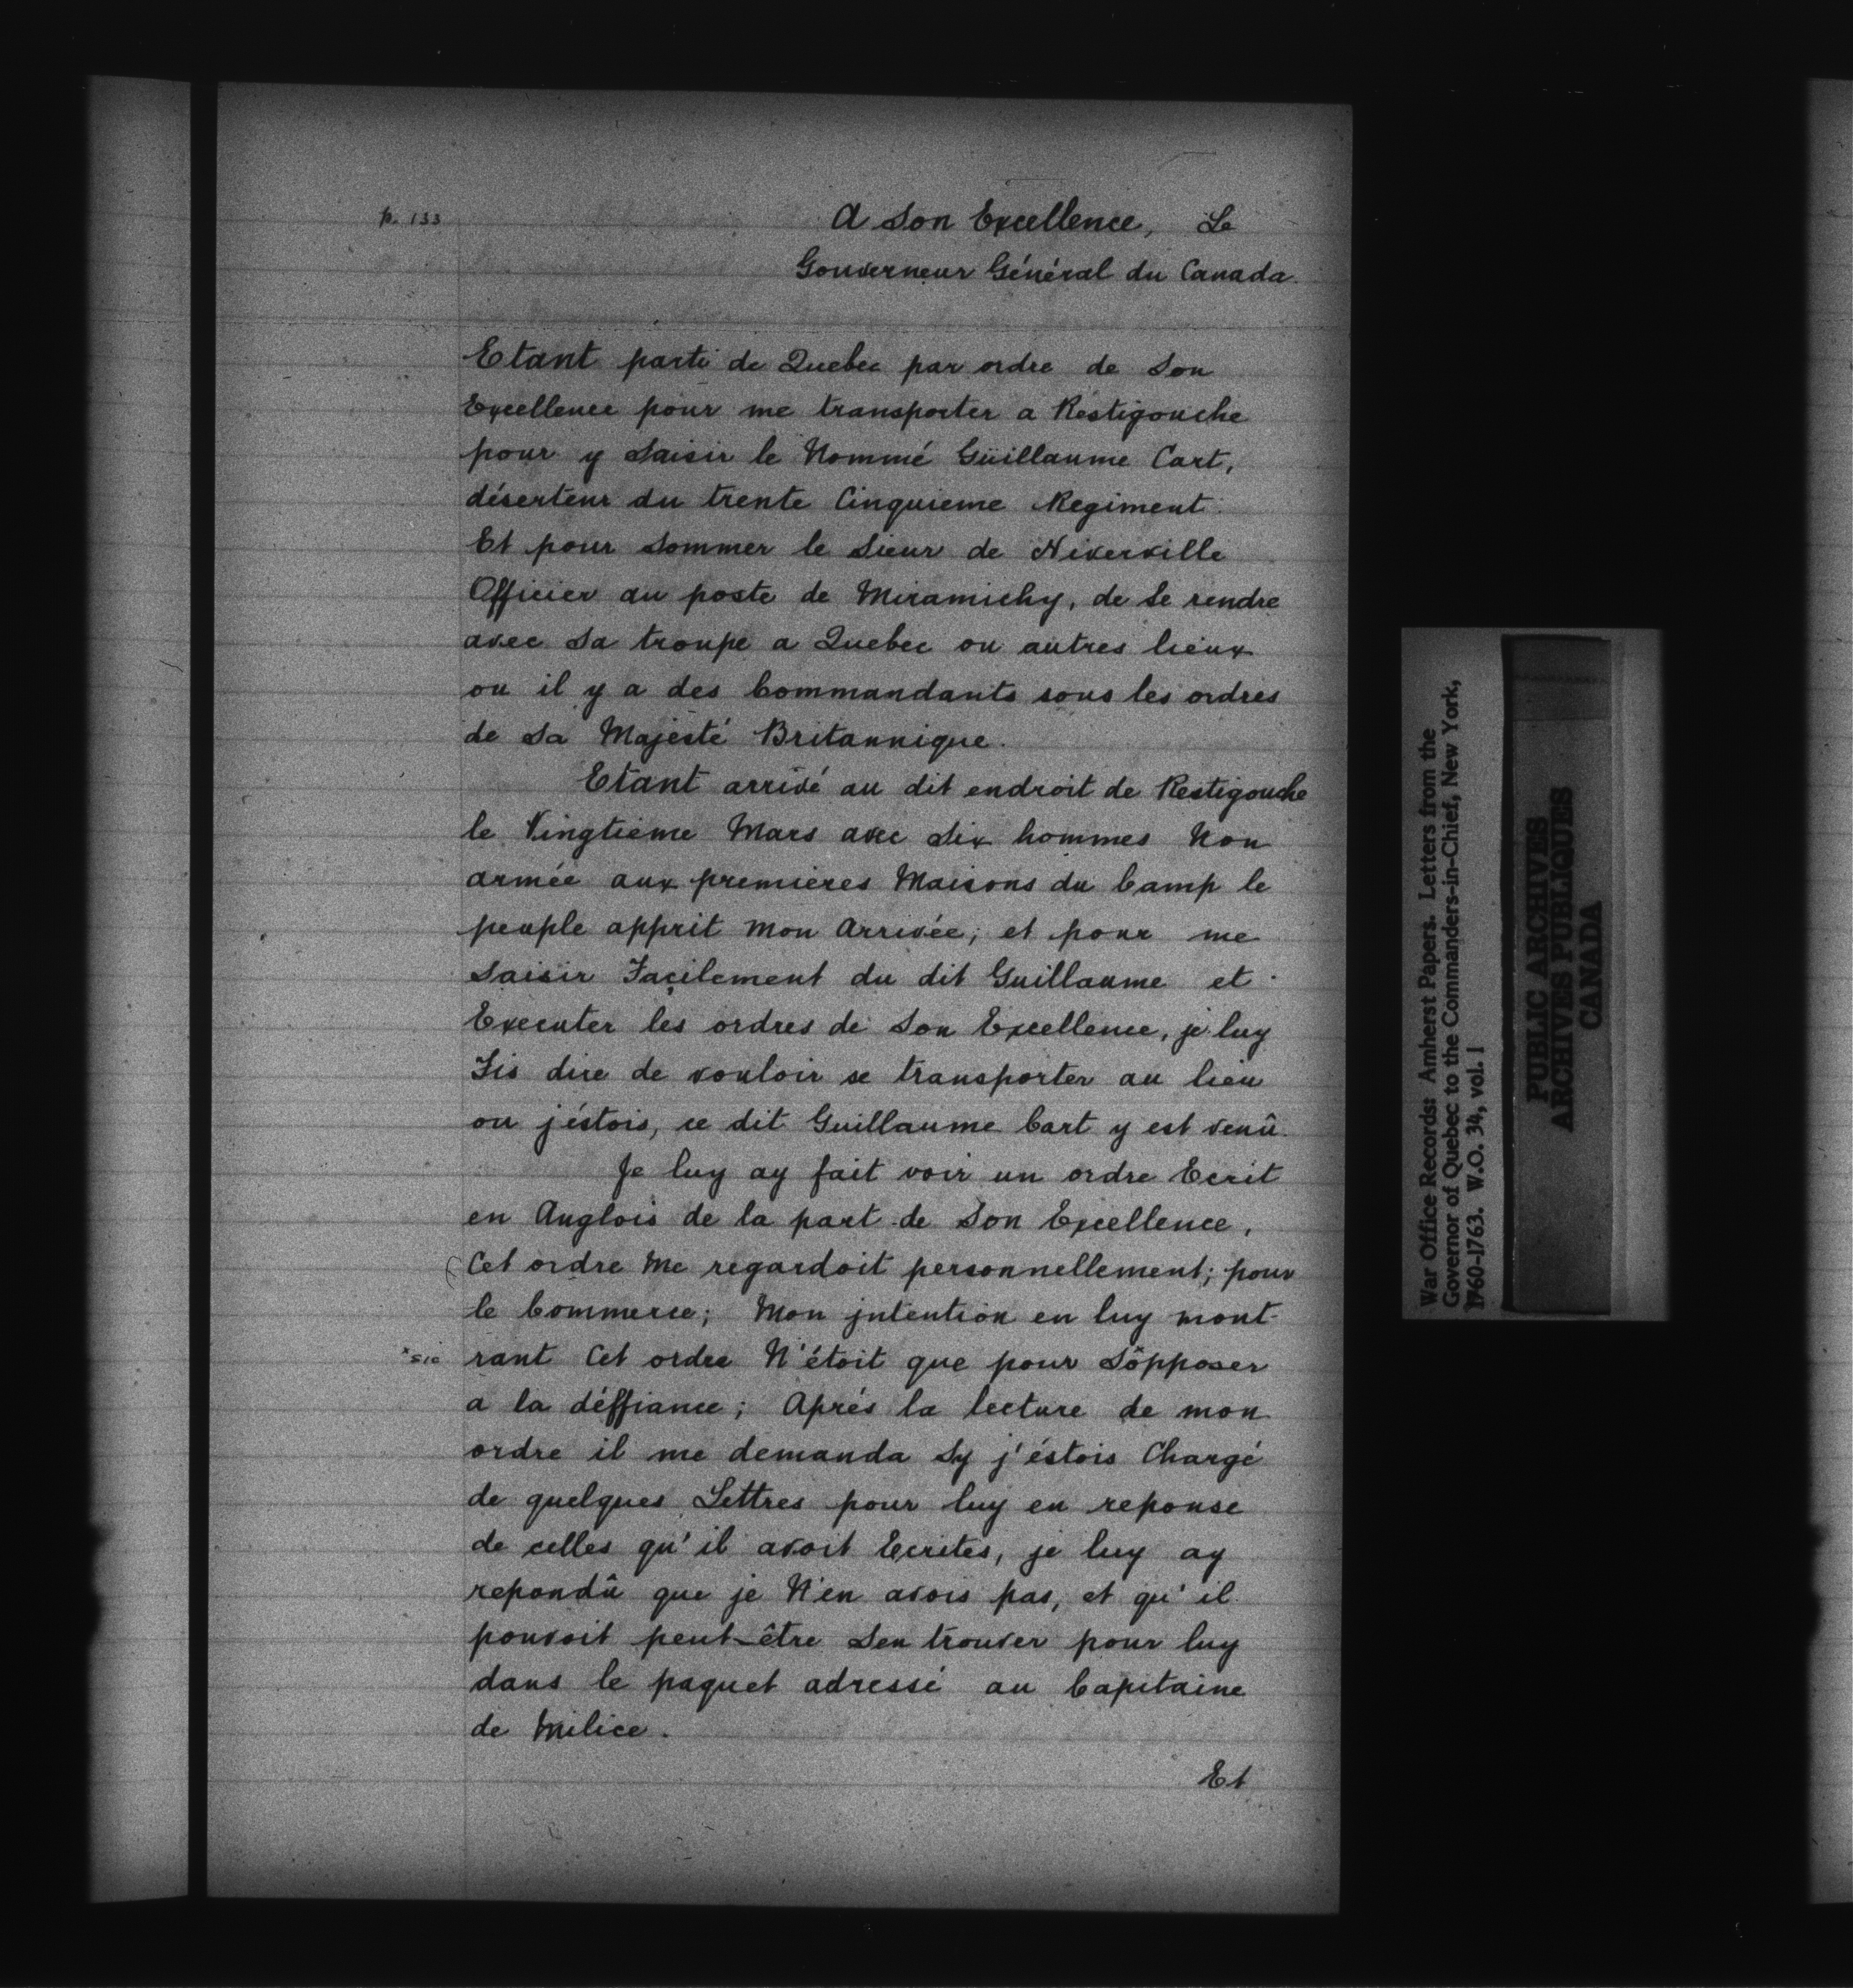 p. 133
A Son Excellence, Le
Gouverneur Général du Canada.
Etant parti de Quebec par ordre de Son
Excellence pour me transporter a Restigouche
pour y Saisir le Nommé Güillaume Cart,
déserteur du trente Cinquieme Regiment.
Et pour Sommer le Sieur de Niverville
Officier au poste de Miramichy, de Se rendre
avec Sa troupe a Quebec ou autres lieux
ou il y a des Commandants sous les ordres
de Sa Majesté Britannique.
Etant arrivé au dit endroit de Restigouche
le Vingtieme Mars avec Six hommes Non
armée aux premieres Maisons du Camp le
peuple apprit Mon Arrivée; et pour me
Saisir Façilement du dit Guillaume et
Executer les ordres de Son Excellence, je luy
Fis dire de vouloir se transporter au lieu
ou j'éstois, ce dit Guillaume Cart y est venû.
Je luy ay fait voir un ordre Ecrit
en Anglois de la part de Son Excellence,
(Cet ordre Me regardoit personnellement; pour
le Commerce; Mon jntention en luy mont-
*sic rant Cet ordre N'étoit que pour Sôpposer
a la déffiance; Aprés la lecture de mon
ordre il me demanda Sy j'éstois Chargé
de quelques Lettres pour luy en reponse
de celles qu'il avoit Ecrites, je luy ay
repondû que je N'en avois pas, et qu'il
pouvoit peut-être Sen trouver pour luy
dans le paquet adressé au Capitaine
de Milice.
Et
War Office Records: Amherst Papers. Letters from the
Governor of Quebec to the Commanders-in-Chief, New York,
1760-1763. W.O. 34, vol. 1
PUBLIC ARCHIVES
ARCHIVES PUBLIQUES
CANADA